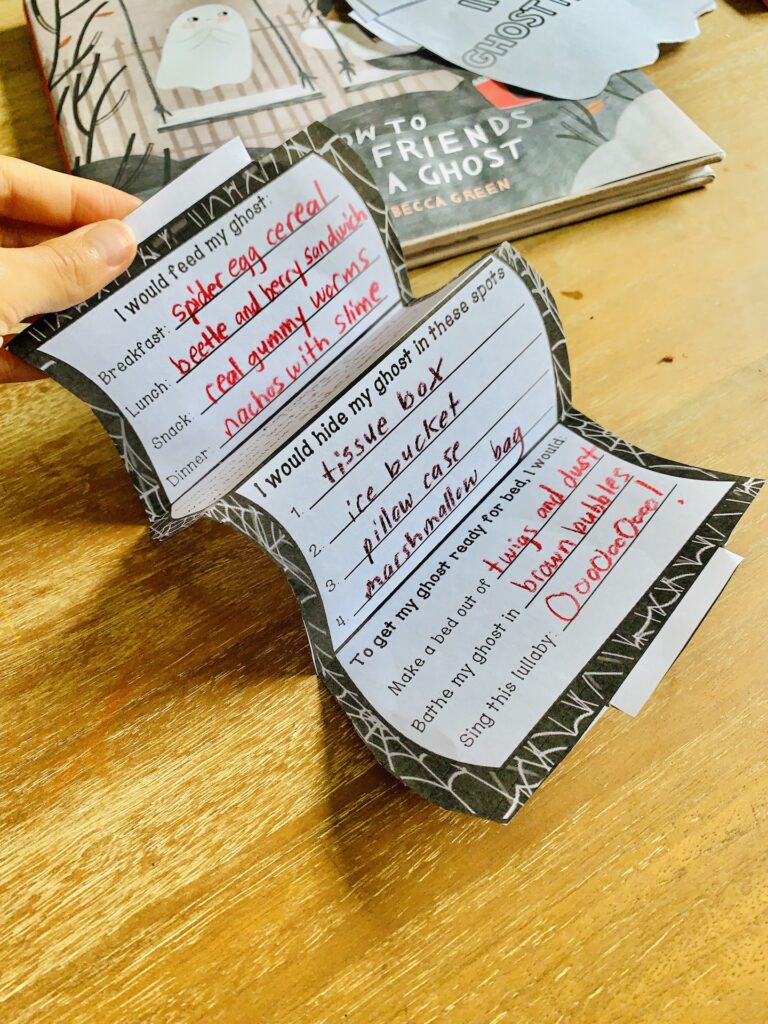 IN
GHOST
OW TO
FRIENDS
A GHOST
BECCA GREEN
I would feed my ghost:
Breakfast: spider egg cereal
Lunch: beetle and berry sandwich
Snack: real gummy worms
Dinner: nachos with slime
I would hide my ghost in these spots
1. tissue box
2. ice bucket
3. pillow case
4. marshmallow bag
To get my ghost ready for bed, I would:
Make a bed out of twigs and dust
Bathe my ghost in brown bubbles
Sing this lullaby: OooOooOooo!